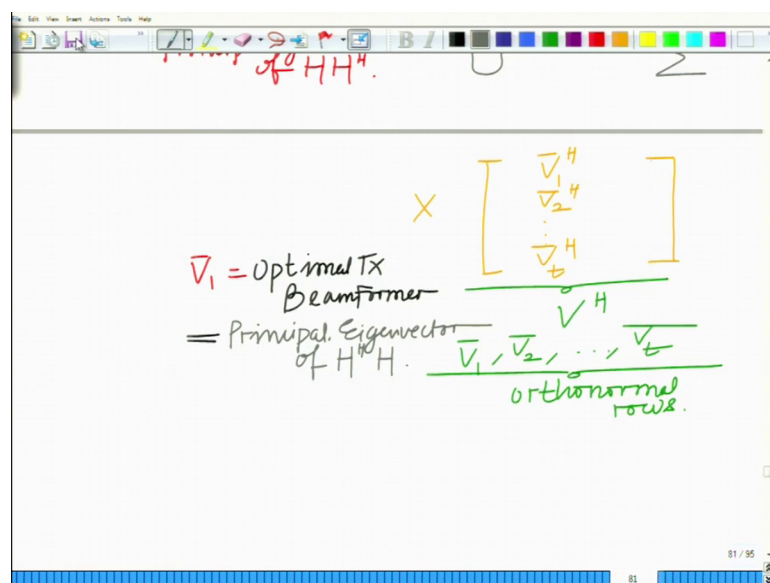 File Edit View Insert Actions Tools Help
B I
of HHᴴ. U Σ
× [ V̄₁ᴴ
V̄₂ᴴ
⋮
V̄ₜᴴ ]
V̄₁ = Optimal Tx
Beamformer
Vᴴ
= Principal Eigenvector
of HᴴH.
V̄₁, V̄₂, ..., V̄ₜ
orthonormal
rows.
81 / 95
81